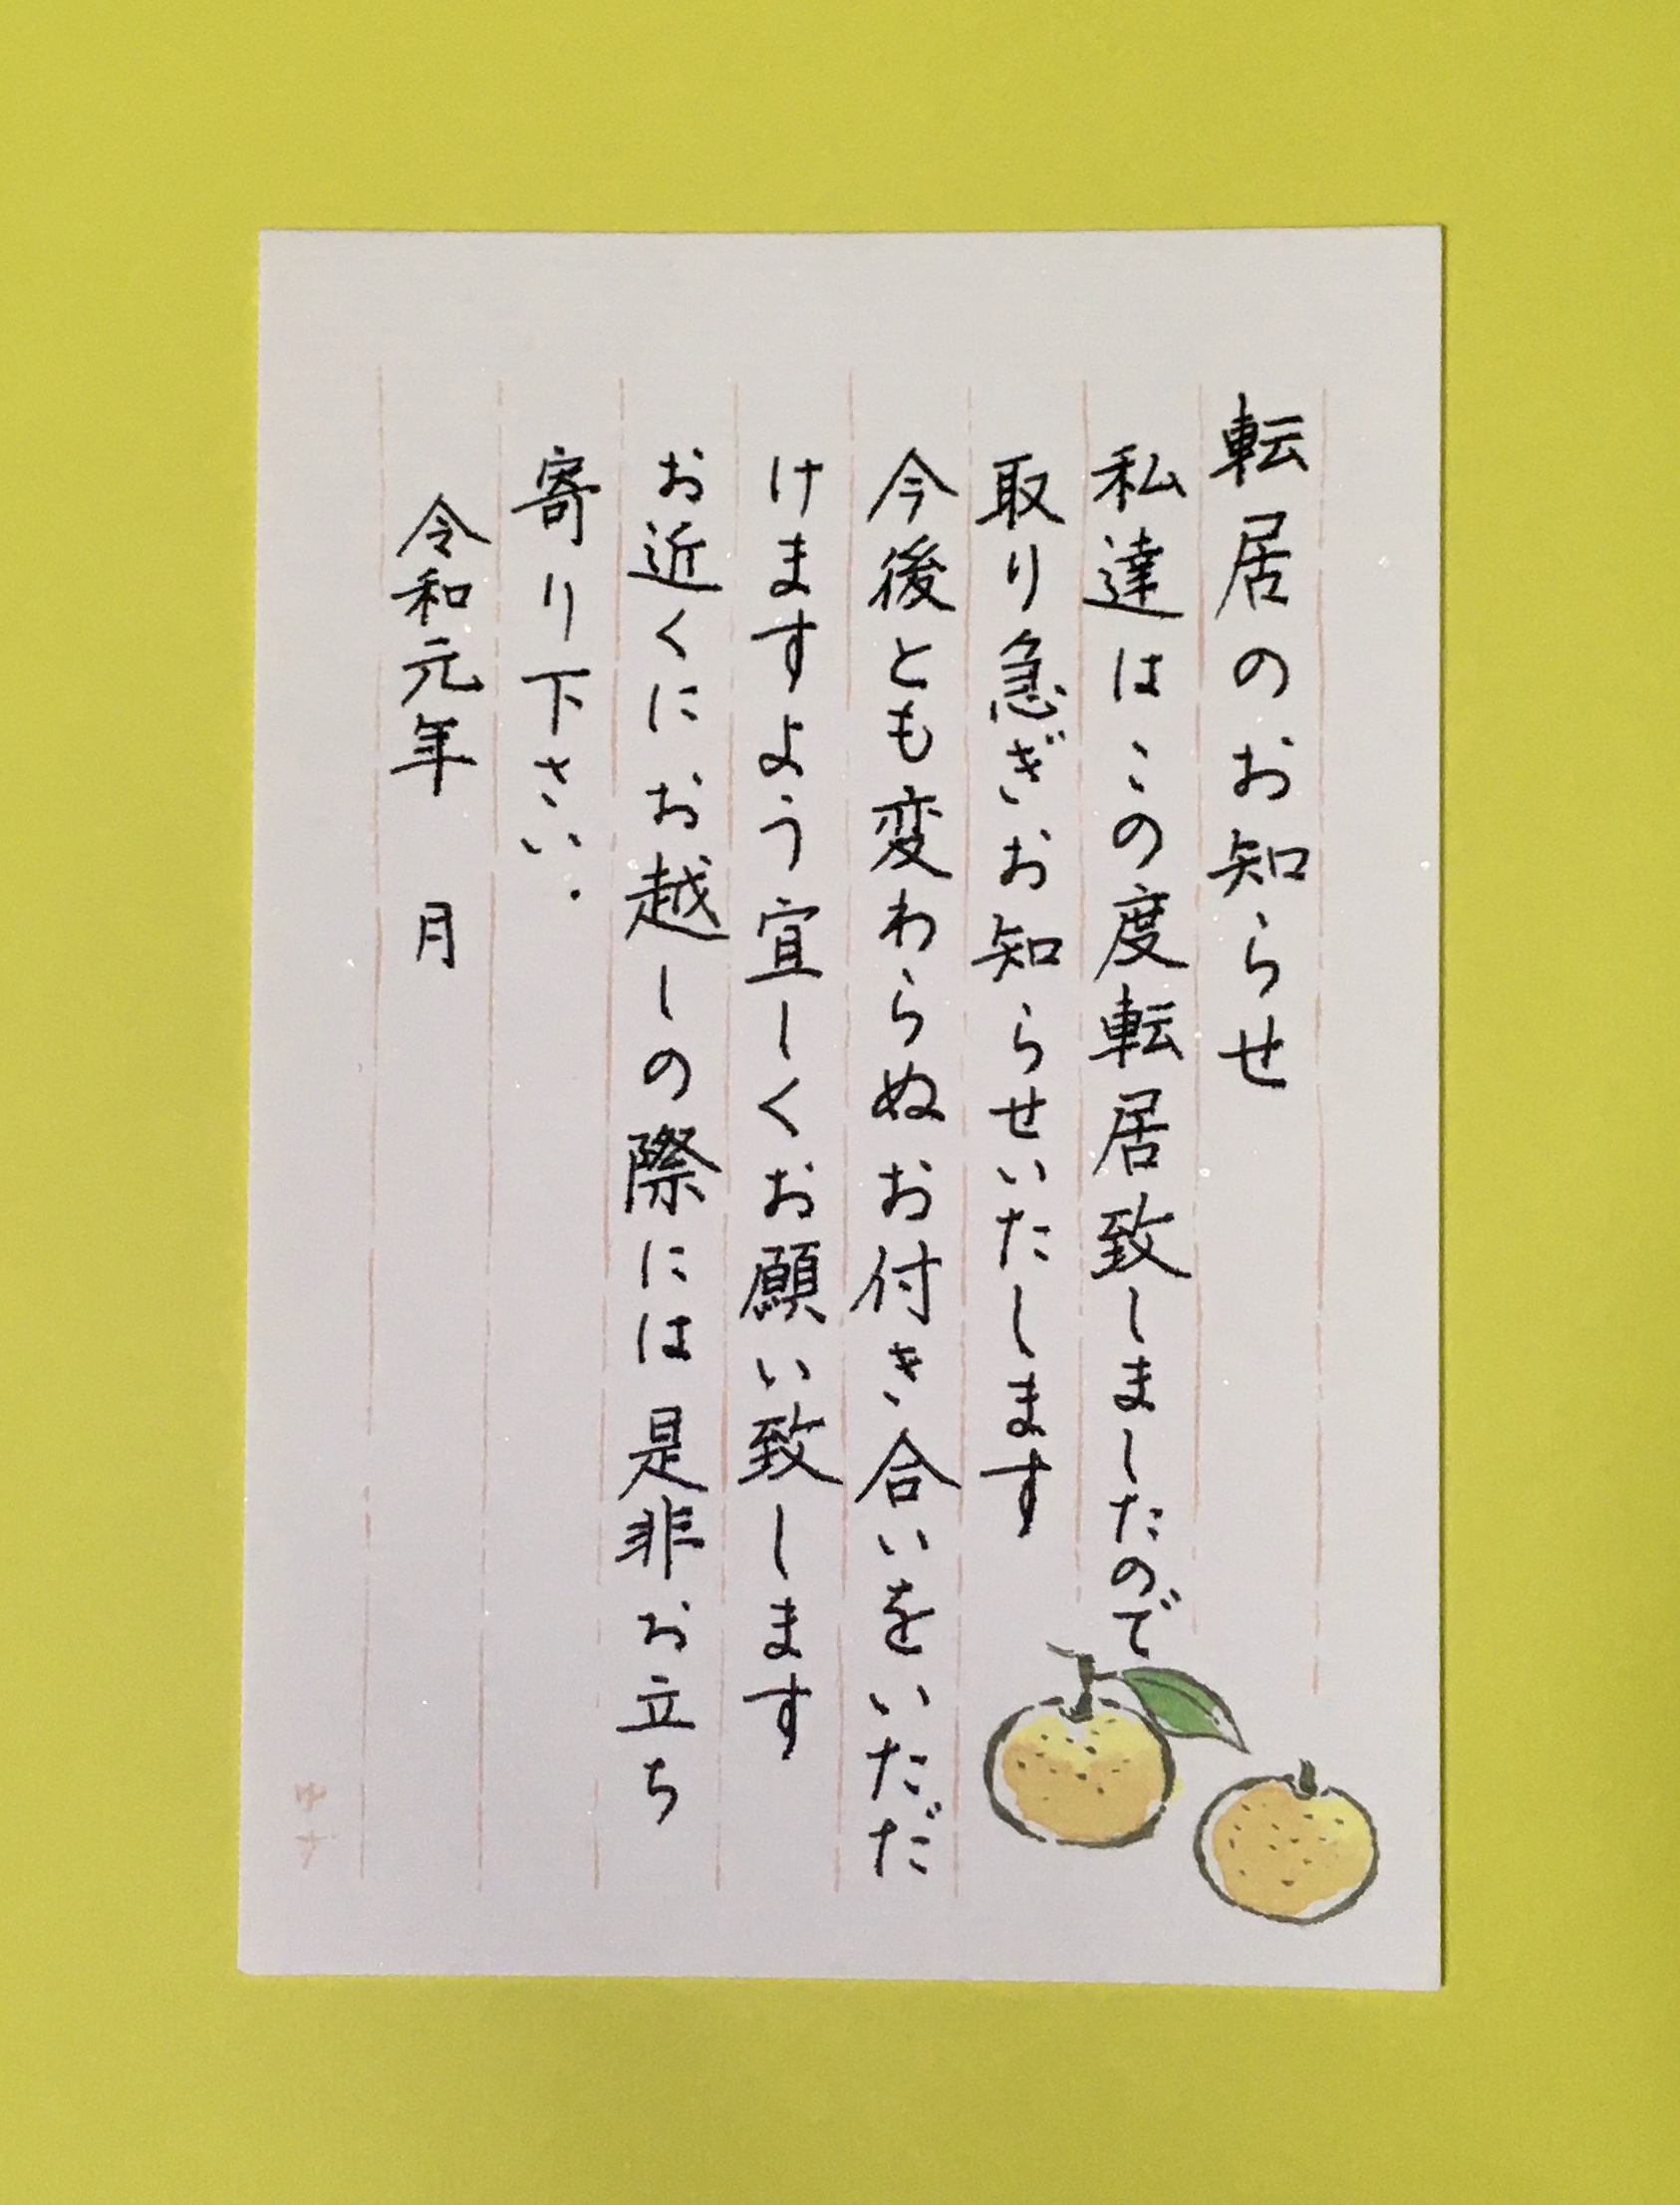 転居のお知らせ
私達はこの度転居致しましたので
取り急ぎお知らせいたします
今後とも変わらぬお付き合いをいただ
けますよう宜しくお願い致します
お近くにお越しの際には是非お立ち
寄り下さい.
令和元年　月